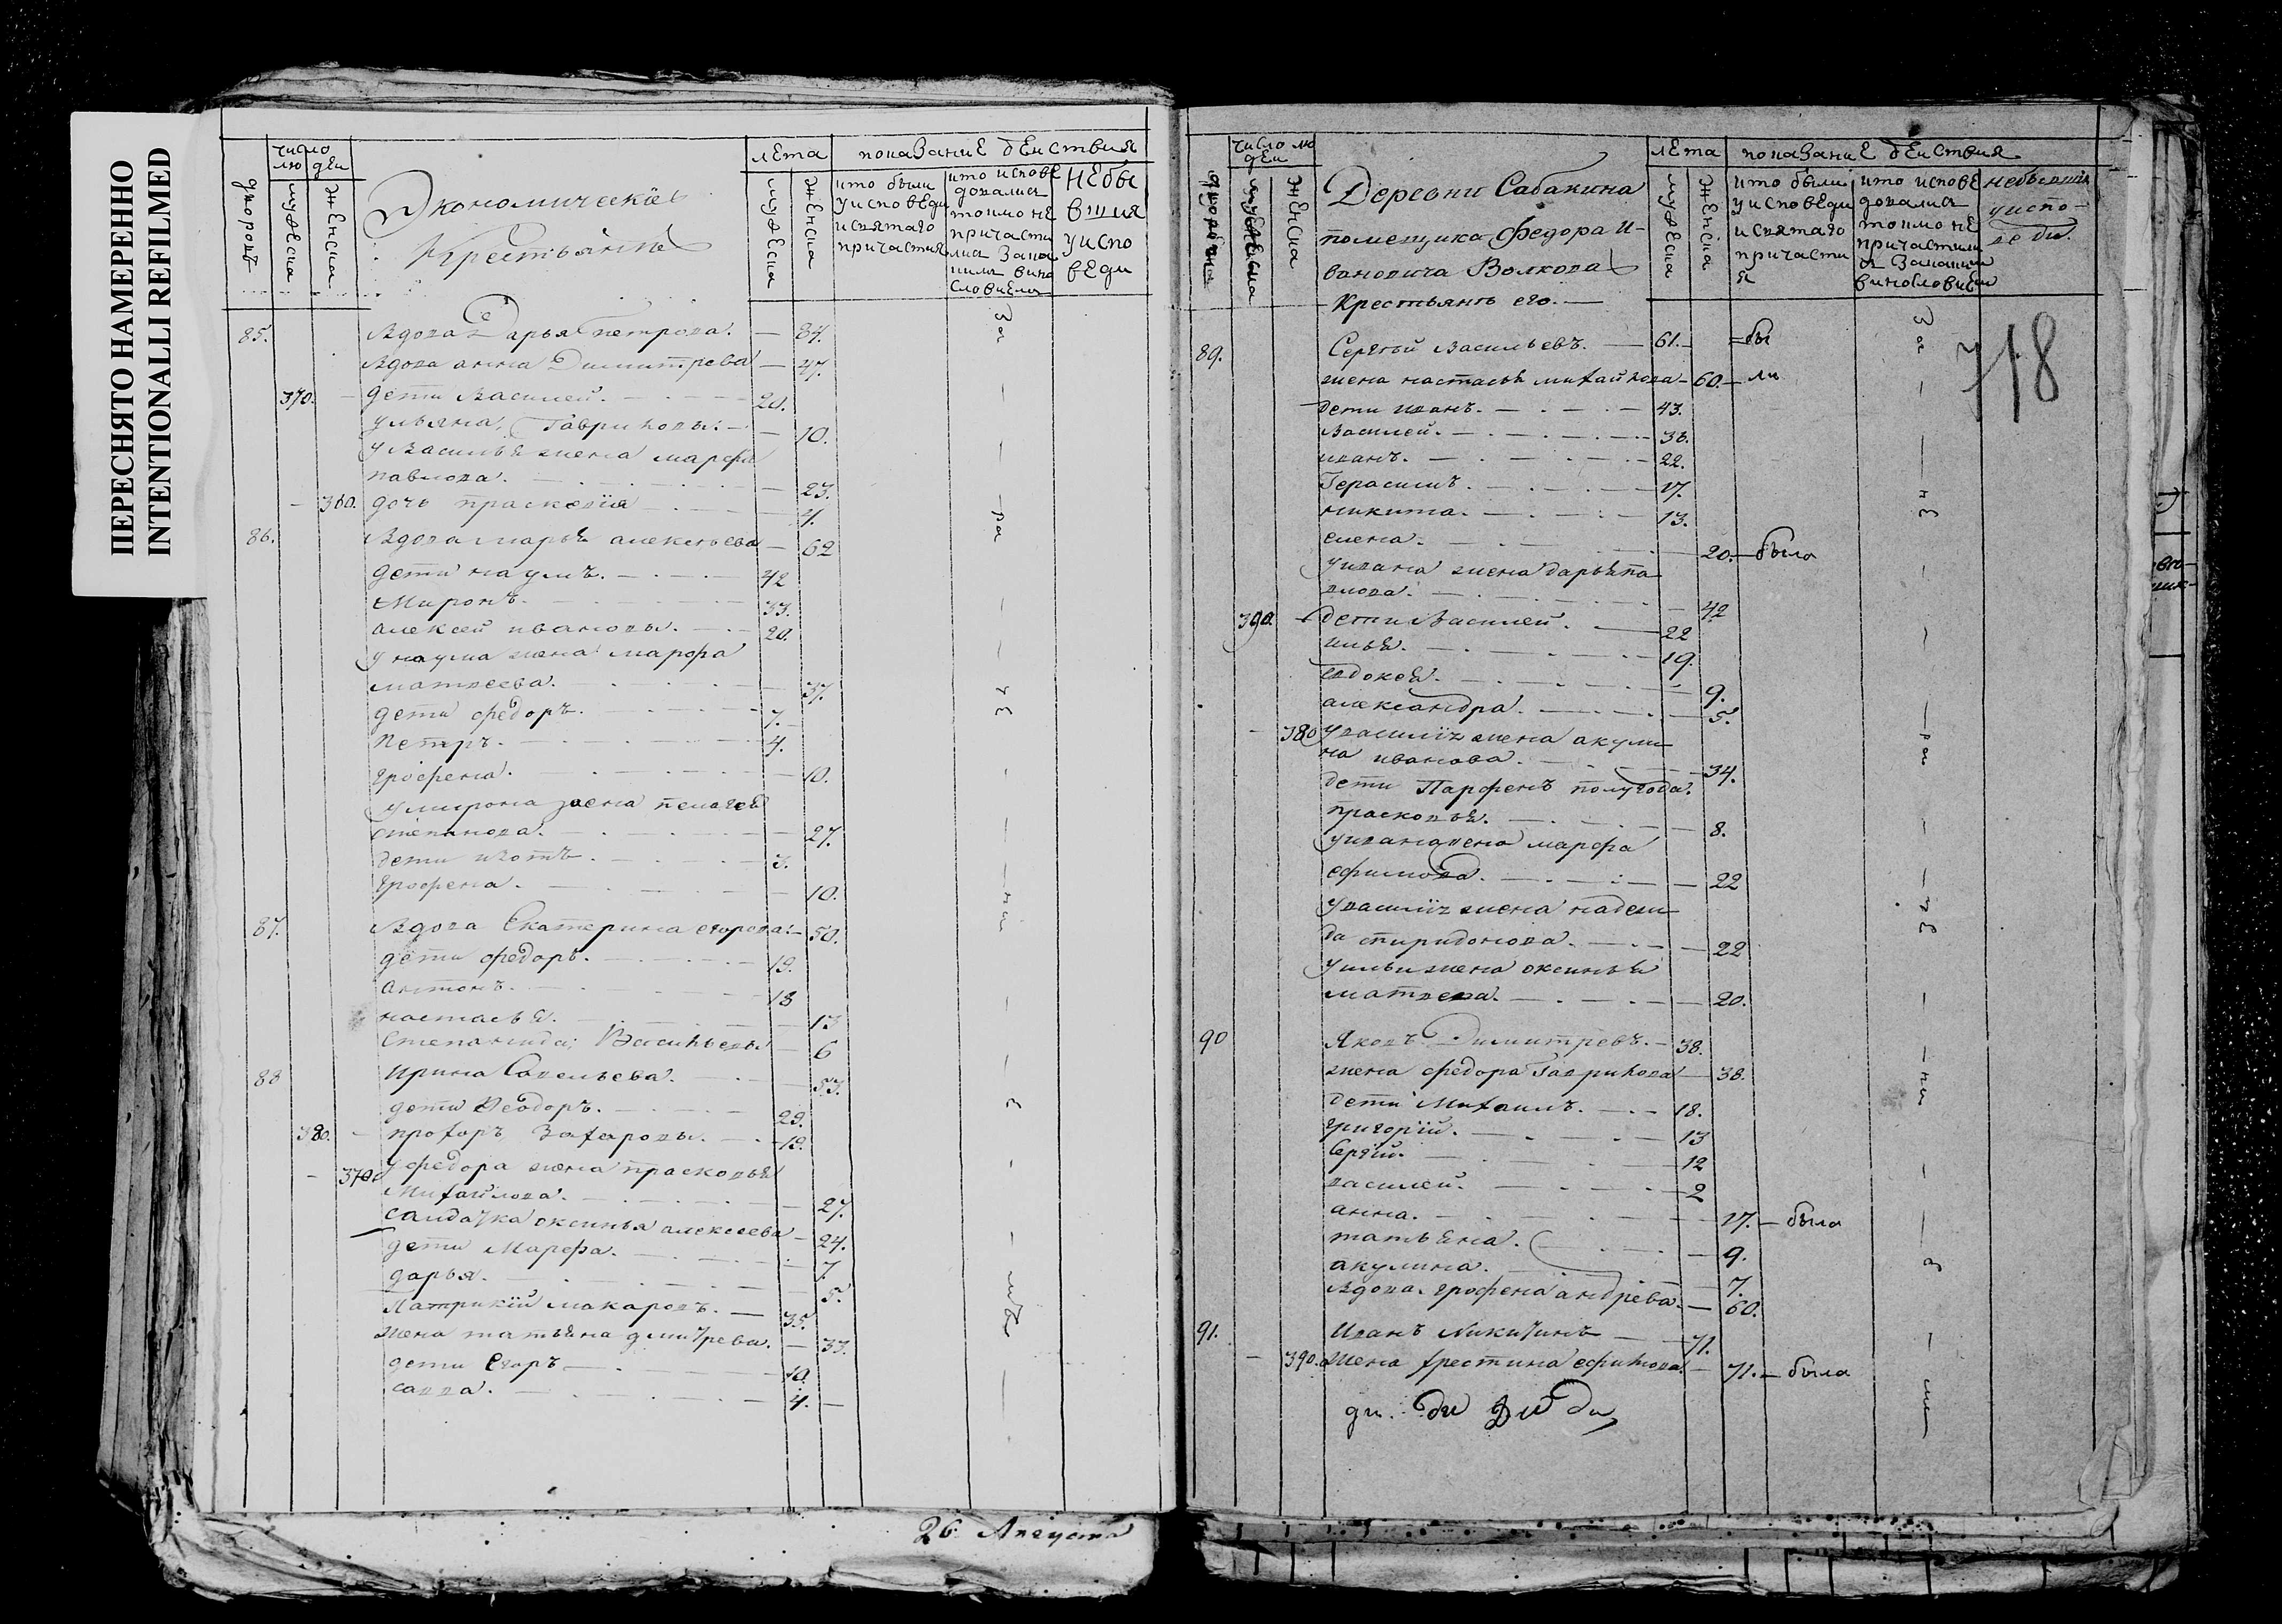 ПЕРЕСНЯТО НАМЕРЕННО
INTENTIONALLI REFILMED
число людеи
лета
показание деиствия
дворовъ
мужеска
женска
Экономическiя
Крестьянѣ
мужеска
женска
кто были у исповеди и святаго причастия
кто исповедовался токмо не причастился
небывшия у исповеди
85. Вдова Дарья Петрова. — 84.
Вдова анна Димитрева — 47.
370. — дети Василей. — 20.
ульяна, Гавриловы. — 10.
у Василья жена марфа
павлова. — 23.
— 360. дочь праскевiя — 4.
86. Вдова марья алексеева — 62
дети наумъ. — 42
Миронъ. — 33.
алексей ивановы. — 20.
у наума жена марфа
матвеева. — 37.
дети федоръ. — 7.
Петръ. — 4.
грофена. — 10.
у мирона жена пелагея
степанова. — 27.
дети изотъ. — 3.
Грофена. — 10.
87. Вдова Екатерина егорова. — 50.
дети федоръ. — 19.
антонъ. — 18
настасья. — 13
Степанида, Васильевы — 6
88 Ирина Савельева. — 53.
дети Феодоръ. — 29.
380. — прохоръ, Захаровы. — 19.
— 370 у федора жена прасковья
Михайлова. — 27.
салдатка оксинья алексеева — 24.
дети Марфа. — 7.
дарья. — 5.
Патрикiй макаровъ. — 35.
жена татьяна дмитрева. — 33.
дети Егоръ — 10.
савва. — 4. —
26. Августа
число людеи
лета
показание деиствия
мужеска
женска
Деревни Сабакина
помещика Федора И-
вановича Волкова
Крестьянѣ его. —
мужеска
женска
кто были у исповеди и святаго причастия
кто исповедовался токмо не причастился
небывшия у исповеди.
718
89. Сергей Васильевъ. — 61. — бы
жена настасья михайлова — 60. — ли
дети иванъ. — 43.
Василей. — 38.
иванъ. — 22.
Герасимъ. — 17.
никита. — 13.
елена. — 20. — была
у ивана жена дарья па
влова. — 42
390. — дети Василей. — 22
илья. — 19.
евдокея. — 9.
александра. — 5.
— 380 у василiя жена акули
на иванова. — 34.
дети Парфенъ полугода.
прасковья. — 8.
у ивана жена марфа
ефимова. — 22
у василiя жена надеж
да спиридонова. — 22
у ильи жена оксинья
матвева. — 20.
90 Яковъ Димитревъ. — 38.
жена федора Гаврилова — 38.
дети Михаилъ. — 18.
григорiй. — 13
Сергiй. — 12
василей. — 2
анна. — 17. — была
татьяна. — 9.
акулина. — 7.
Вдова грофена андрева. — 60.
91. Иванъ Никитинъ — 71.
— 390. жена хрестина ефимова. — 71. — была